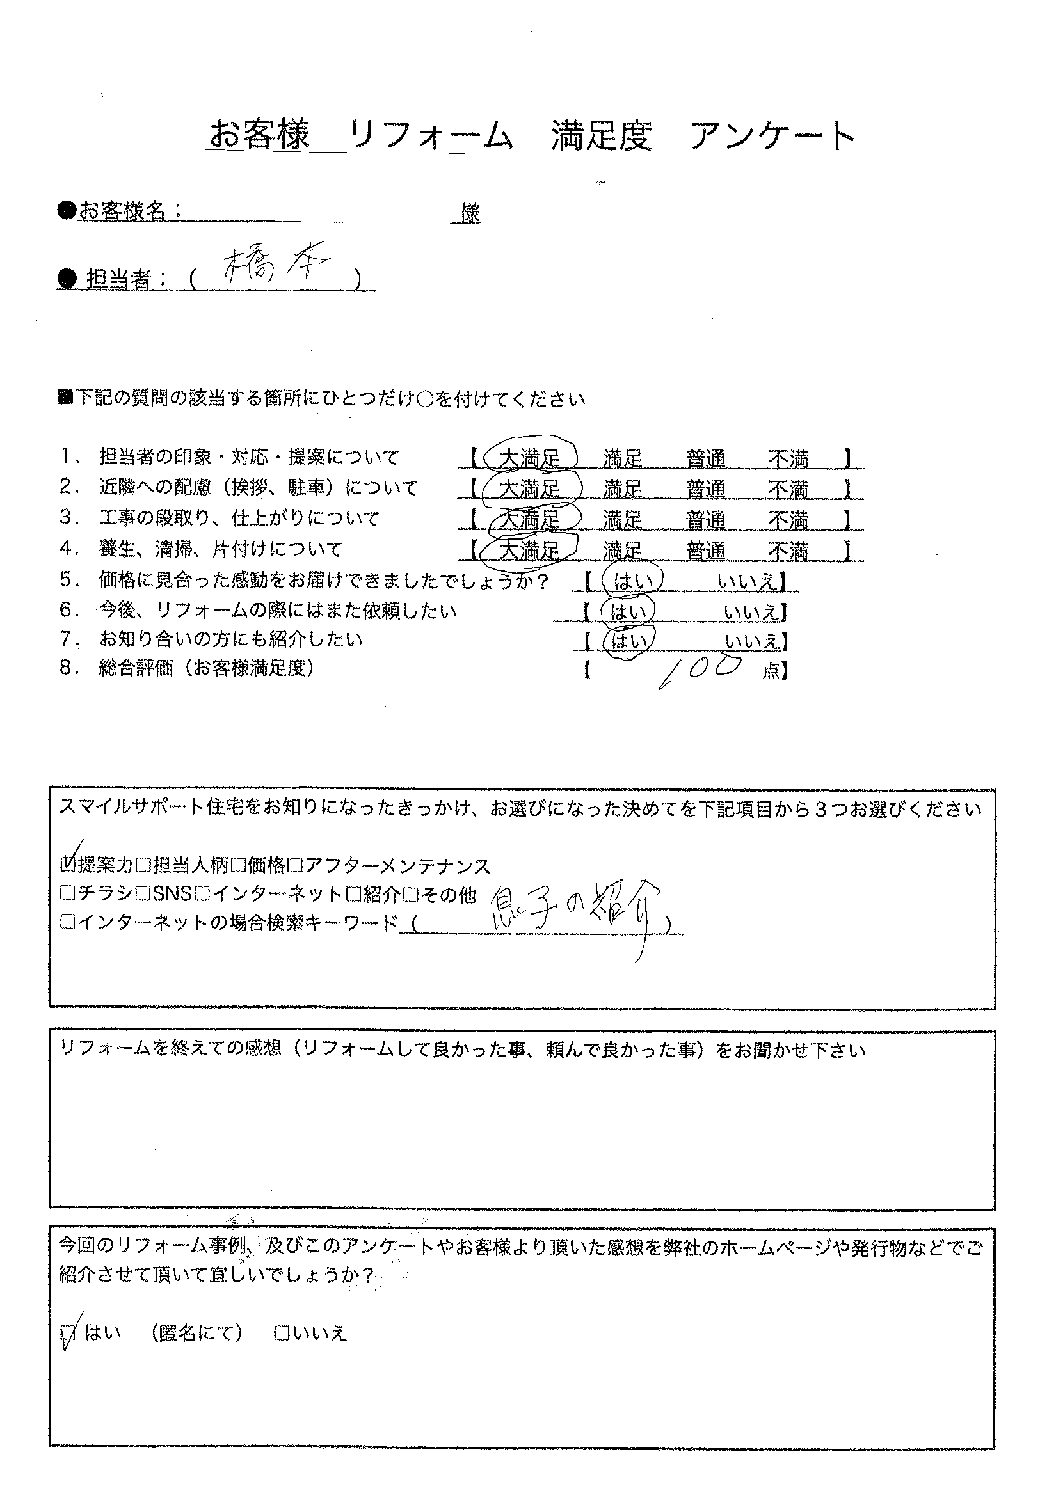 お客様　リフォーム　満足度　アンケート
●お客様名：　　　　様
●担当者：（ 橋本 ）
■下記の質問の該当する箇所にひとつだけ○を付けてください
1．担当者の印象・対応・提案について　【 大満足　満足　普通　不満 】
2．近隣への配慮（挨拶、駐車）について　【 大満足　満足　普通　不満 】
3．工事の段取り、仕上がりについて　【 大満足　満足　普通　不満 】
4．養生、清掃、片付けについて　【 大満足　満足　普通　不満 】
5．価格に見合った感動をお届けできましたでしょうか？　【 はい　いいえ】
6．今後、リフォームの際にはまた依頼したい　【 はい　いいえ】
7．お知り合いの方にも紹介したい　【 はい　いいえ】
8．総合評価（お客様満足度）　【 100 点】
スマイルサポート住宅をお知りになったきっかけ、お選びになった決めてを下記項目から３つお選びください
☑提案力□担当人柄□価格□アフターメンテナンス
□チラシ□SNS□インターネット□紹介□その他
□インターネットの場合検索キーワード（ 息子の紹介 ）
リフォームを終えての感想（リフォームして良かった事、頼んで良かった事）をお聞かせ下さい
今回のリフォーム事例、及びこのアンケートやお客様より頂いた感想を弊社のホームページや発行物などでご
紹介させて頂いて宜しいでしょうか？
☑はい　（匿名にて）　□いいえ